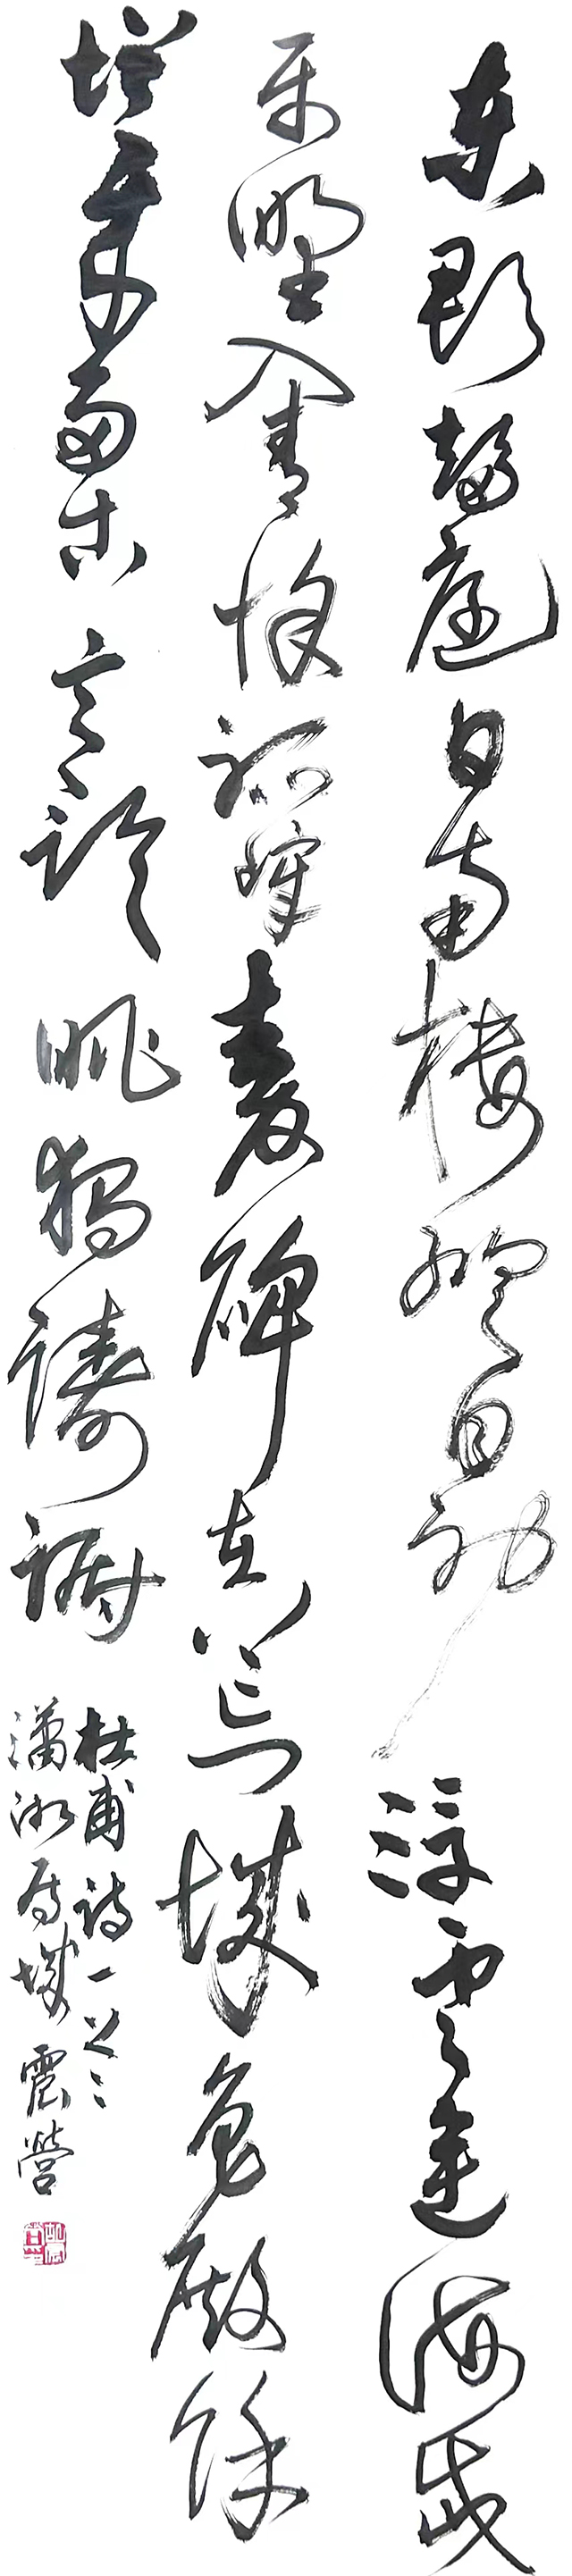 東郡趨庭日南樓縱目初浮雲連海岱
平野入青徐孤嶂秦碑在荒城魯殿餘
從來多古意臨眺獨躊躇
杜甫詩一首
瀟湘 震營